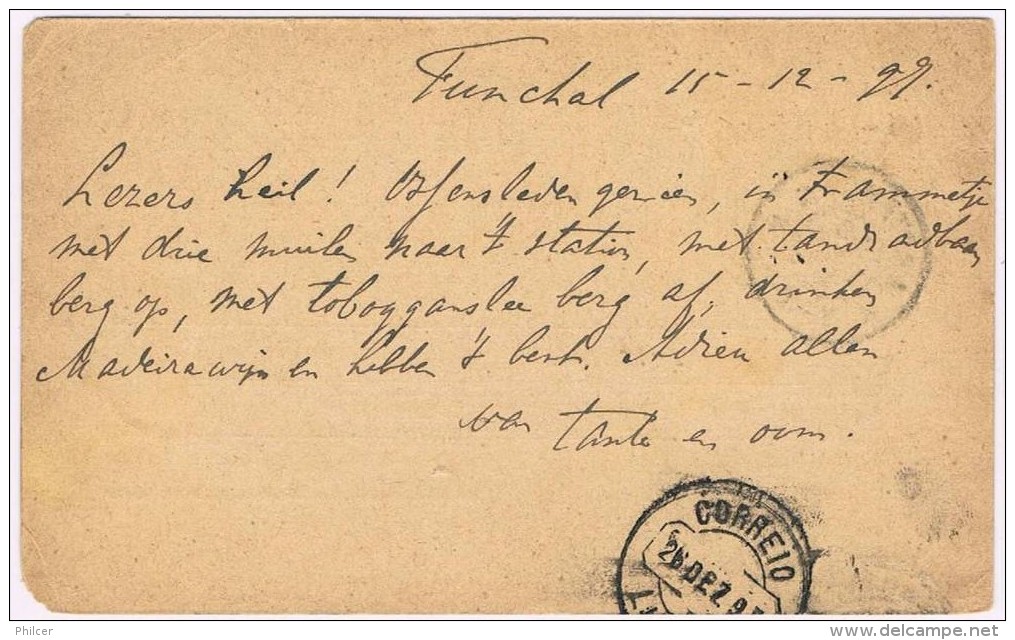 Funchal 15-12-97.
Lezers heil! Ossensleden gezien, in Trammetje
met drie muilen naar 't station, met tandradbaan
berg op, met tobogganslee berg af, drinken
Madeirawijn en hebben 't best. Adieu allen
van Tante en oom.
CORREIO
26 DEZ 9
Philcer
www.delcampe.net